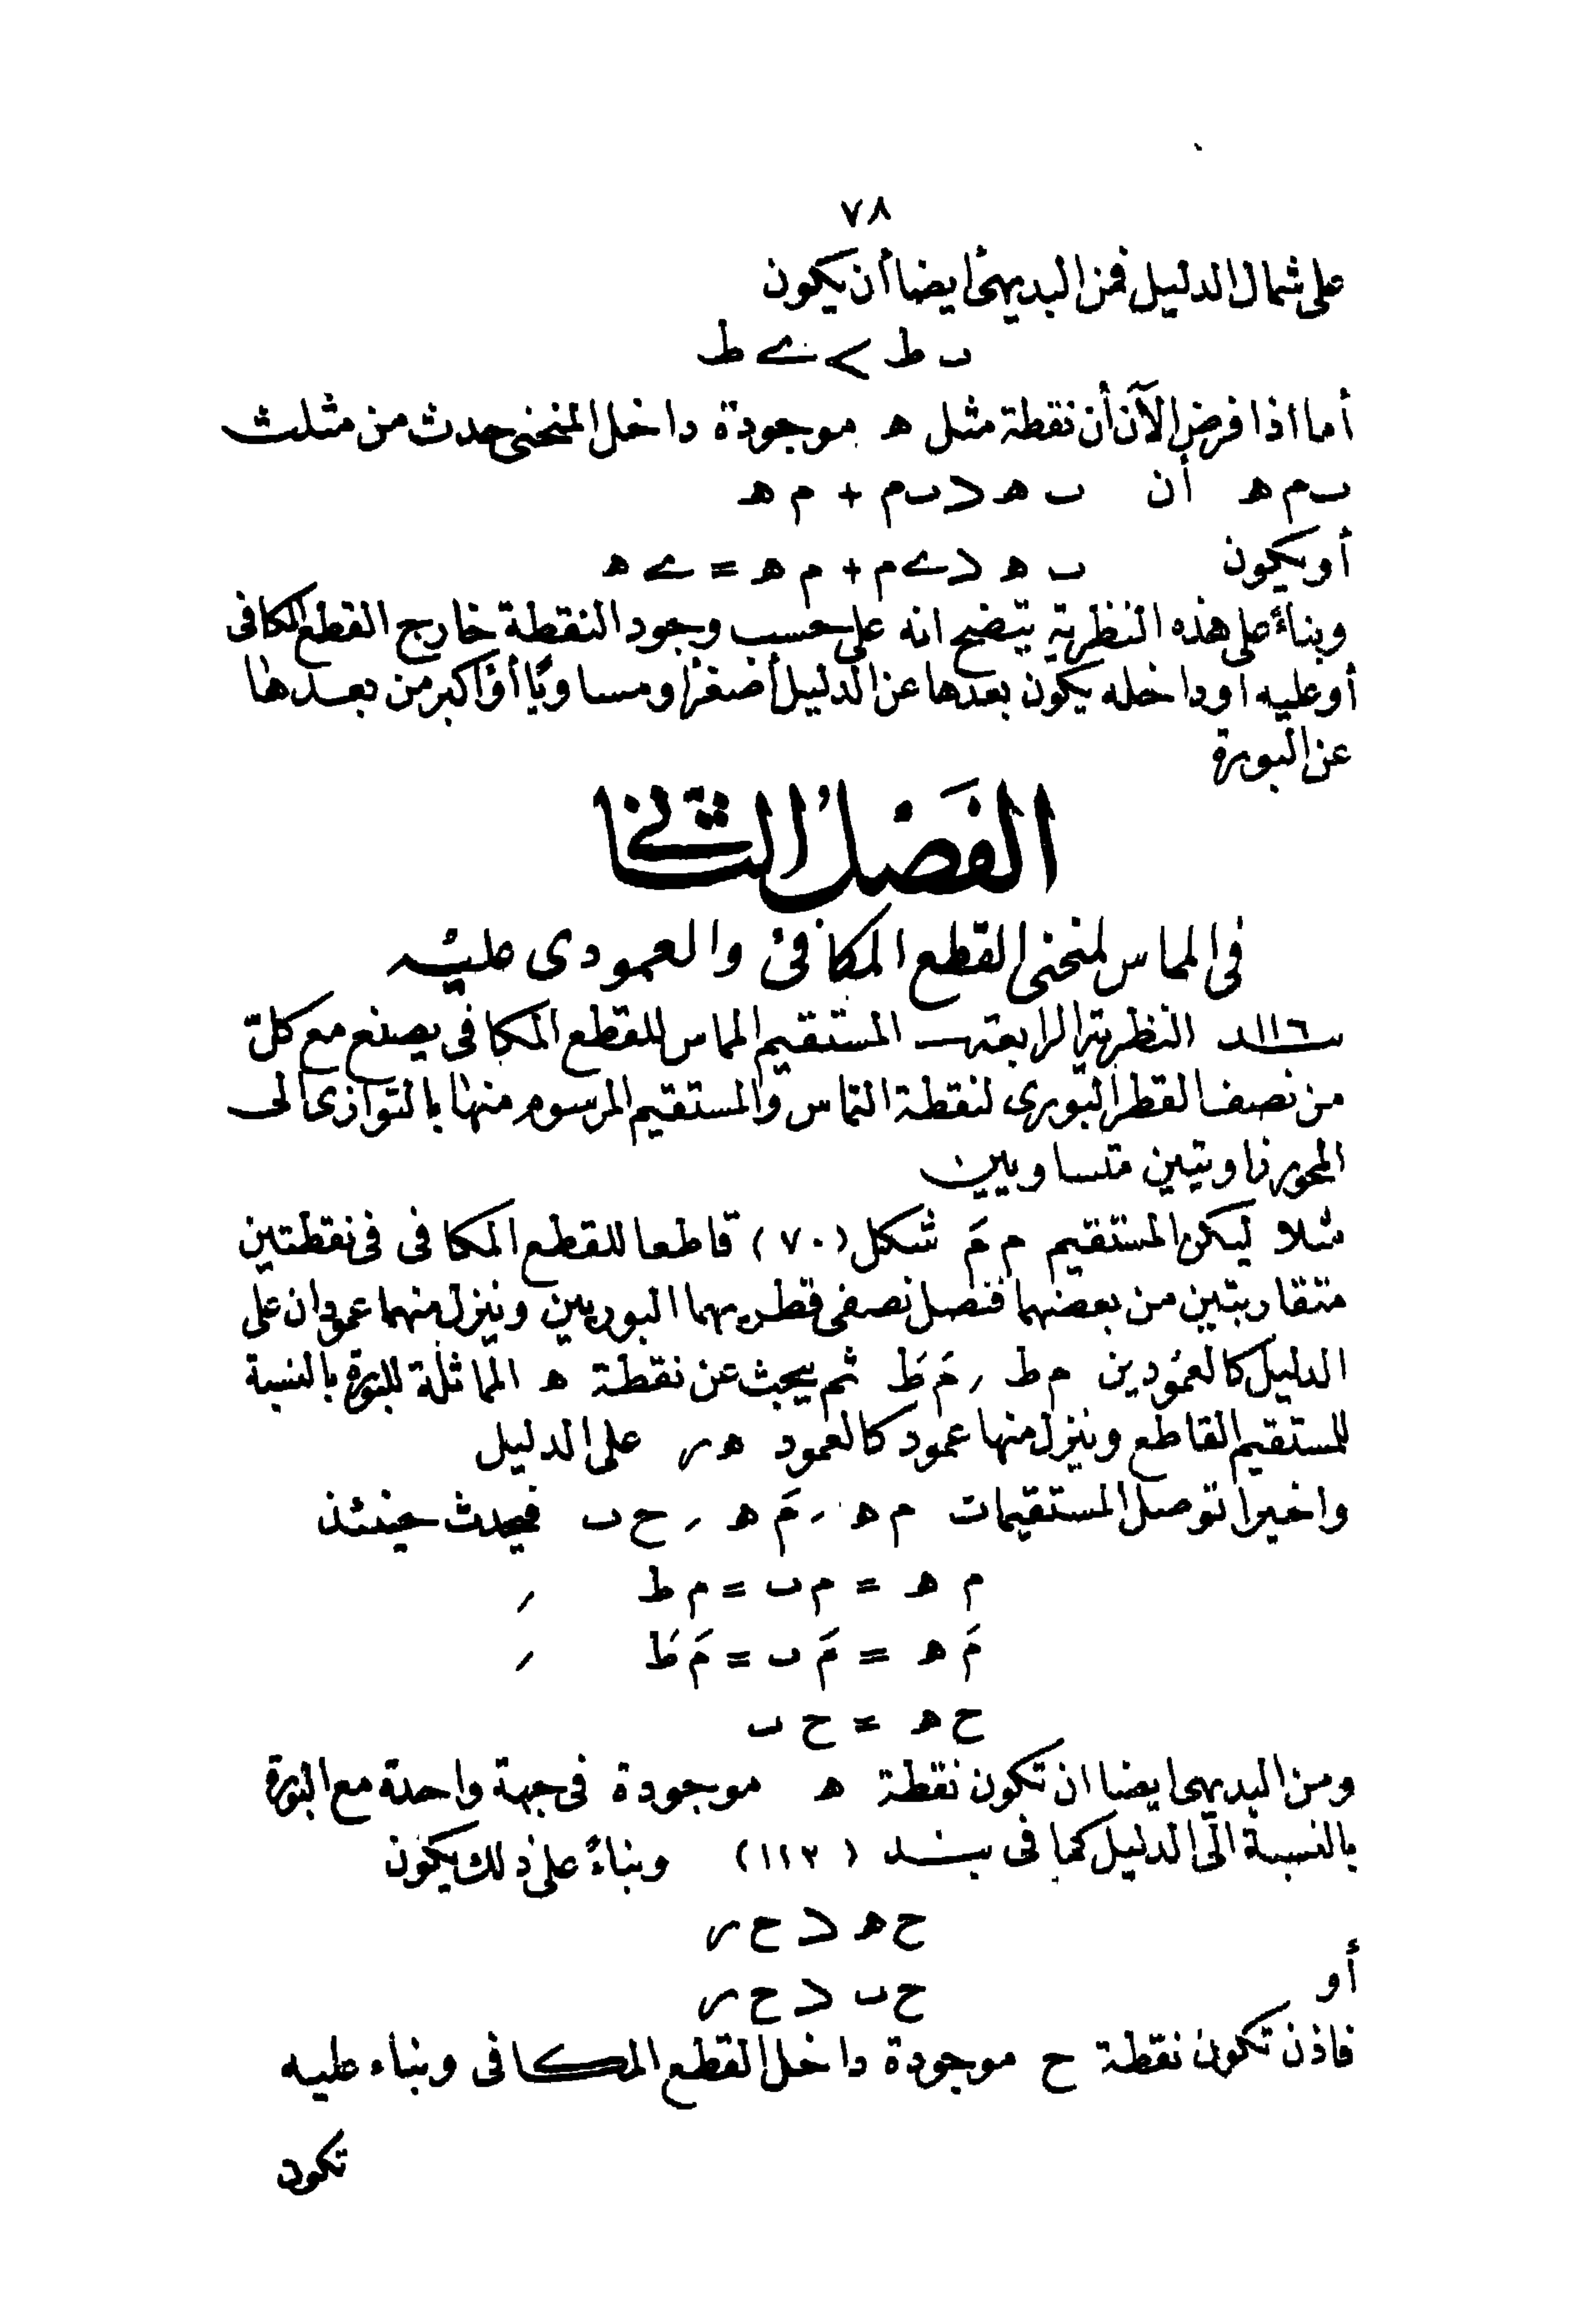 ٧٨
على شمال الدليل فمن البديهى أيضا أن يكون
ب ط > ے ط
أما اذا فرض الآن أن نقطة مثل ه موجودة داخل المنحنى حدث من مثلث
ب م ه أن ب ه < ب م + م ه
أو يكون ب ه < ے م + م ه = ے ه
وبناءً على هذه النظرية يتضح انه على حسب وجود النقطة خارج القطع المكافى
أو عليه او داخله يكون بعدها عن الدليل أصغر أو مساويًا أو أكبر من بعدها
عن البورة
الفَصْلُ الثَّانِى
فى المماس لمنحنى القطع المكافئ والعمودى عليه
١١٦ـد النظرية الرابعة ـ المستقيم المماس للقطع المكافى يصنع مع كلّ
من نصف القطر البورى لنقطة التماس والمستقيم المرسوم منها بالتوازى الى
المحور زاويتين متساويين
مثلا ليكن المستقيم م مَ شكل (٧٠) قاطعا للقطع المكافى فى نقطتين
متقاربتين من بعضهما فنصل نصفى قطريهما البوريين وينزل منهما عمودان على
الدليل كالعمودين م ط ر مَ طَ ثم يبحث عن نقطة ه المماثلة للبورة بالنسبة
للمستقيم القاطع وينزل منها عمود كالعمود ه ر على الدليل
واخيرا توصل المستقيمات م ه ر مَ ه ر ح ب فيحدث حينئذ
م ه = م ب = م ط ر
مَ ه = مَ ب = مَ طَ ر
ح ه = ح ب
ومن البديهى ايضا ان تكون نقطة ه موجودة فى جهة واحدة مع البورة
بالنسبة الى الدليل كما فى بند (١١٣) وبناءً على ذلك يكون
ح ه < ح ر
أو ح ب < ح ر
فاذن تكون نقطة ح موجودة داخل القطع المكافى وبناء عليه
تكون